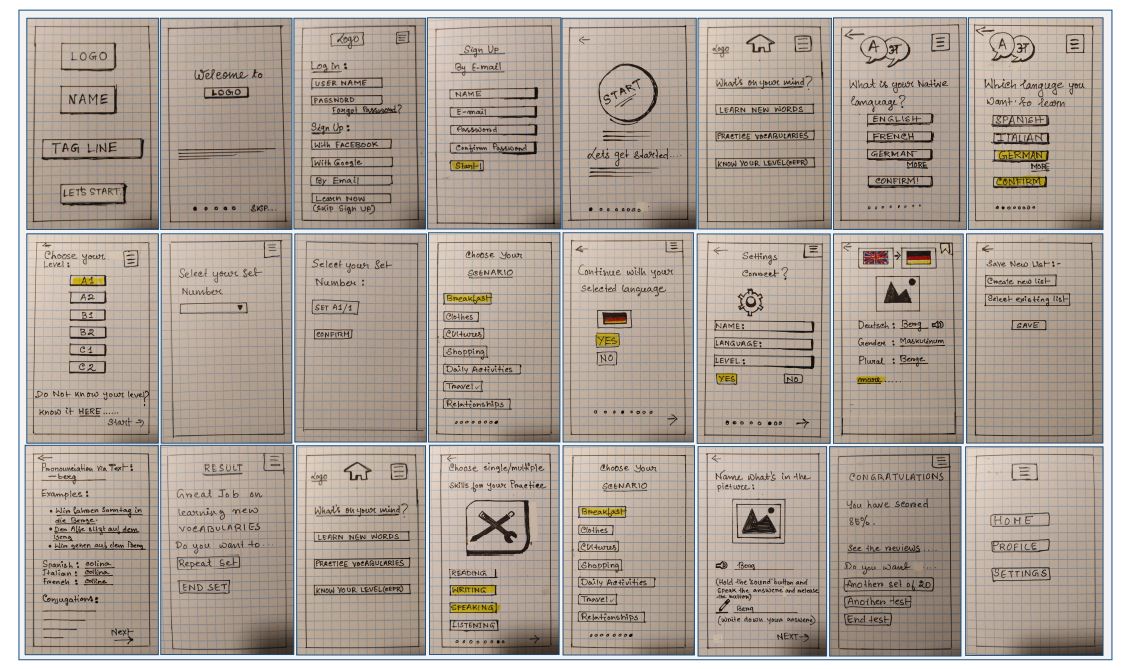 LOGO
NAME
TAG LINE
LET'S START
Welcome to
LOGO
SKIP...
Logo
Log In:
USER NAME
PASSWORD
Forgot Password?
Sign Up:
With FACEBOOK
With Google
By Email
Learn NOW
(Skip Sign UP)
Sign Up
By E-mail
NAME
E-mail
Password
Confirm Password
Start
START
Lets get started....
Logo
What's on your mind?
LEARN NEW WORDS
PRACTICE VOCABULARIES
KNOW YOUR LEVEL(CEFR)
A अ
What is your Native
language?
ENGLISH
FRENCH
GERMAN
MORE
CONFIRM!
A अ
Which languge you
want to learn
SPANISH
ITALIAN
GERMAN
MORE
CONFIRM
Choose your
Level:
A1
A2
B1
B2
C1
C2
Do Not know your level?
know it HERE......
Start →
Select your Set
Number
Select your Set
Number:
SET A1/1
CONFIRM
Choose Your
SCENARIO
Breakfast
Clothes
Cultures
Shopping
Daily Activities
Travel
Relationships
Continue with your
Selected language
YES
NO
Settings
Correct?
NAME:
LANGUAGE:
LEVEL:
YES NO
Deutsch: Berg
Gender: Maskulinum
Plural: Berge
more.....
Save New List:-
Create new list
Select existing list
SAVE
Pronounciation Via Text:
berg
Examples:
• Wir fahren Sonntag in
die Berge.
• Der Affe sitzt auf dem
Berg
• Wir gehen auf dem Berg
Spanish: colina
Italian: collina
French: colline
Conjugations:
Next
RESULT
Great Job on
learning new
VOCABULARIES
Do you want to...
Repeat Set
END SET
Logo
What's on your mind?
LEARN NEW WORDS
PRACTICE VOCABULARIES
KNOW YOUR LEVEL(CEFR)
Choose single/multiple
Skills for your Practice
READING
WRITING
SPEAKING
LISTENING
Choose Your
SCENARIO
Breakfast
Clothes
Cultures
Shopping
Daily Activities
Travel
Relationships
Name what's in the
picture:
Berg
(Hold the 'sound' button and
speak the answere and release
the button)
Berg
(write down your answere)
NEXT→
CONGRATULATIONS
You have scored
85%.
See the reviews....
Do you want ...
Another set of 20
Another test
End test
HOME
PROFILE
SETTINGS